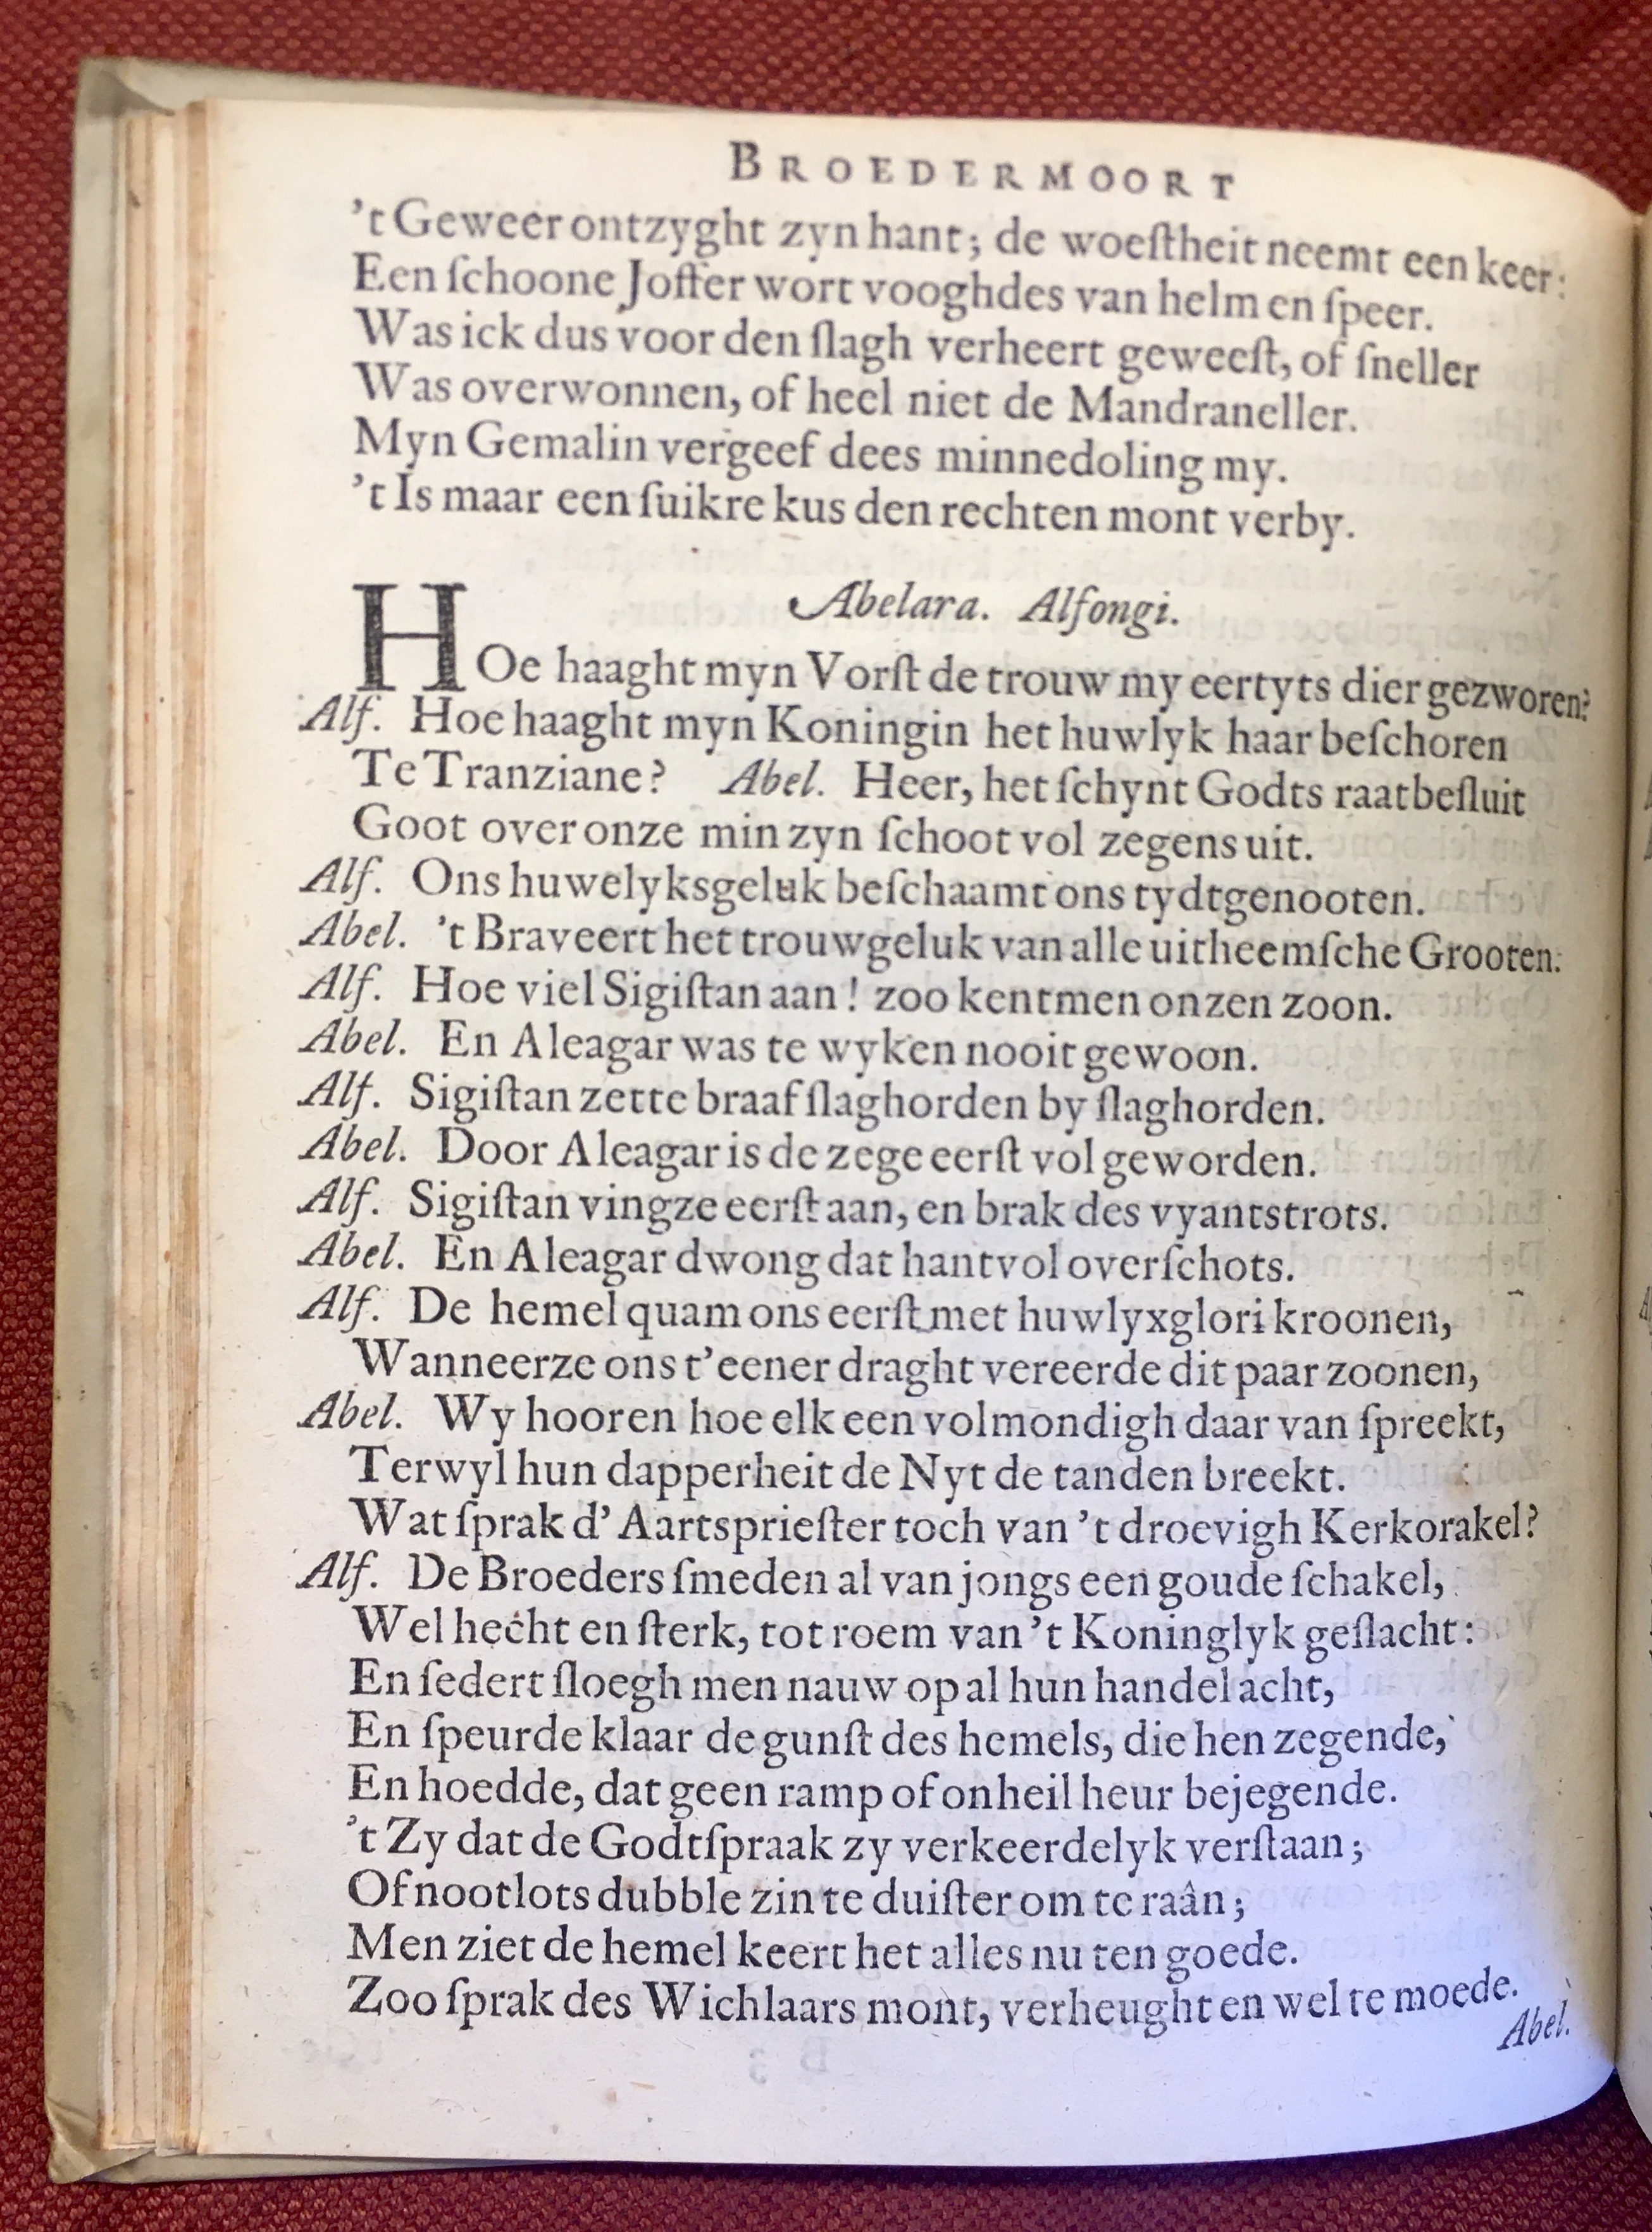 BROEDERMOORT
't Geweer ontzyght zyn hant; de woeſtheit neemt een keer:
Een ſchoone Joffer wort vooghdes van helm en ſpeer.
Was ick dus voor den ſlagh verheert geweeſt, of ſneller
Was overwonnen, of heel niet de Mandraneller.
Myn Gemalin vergeef dees minnedoling my.
't Is maar een ſuikre kus den rechten mont verby.
Abelara. Alfongi.
HOe haaght myn Vorſt de trouw my eertyts dier gezworen?
Alf. Hoe haaght myn Koningin het huwlyk haar beſchoren
Te Tranziane? Abel. Heer, het ſchynt Godts raatbeſluit
Goot over onze min zyn ſchoot vol zegens uit.
Alf. Ons huwelyksgeluk beſchaamt ons tydtgenooten.
Abel. 't Braveert het trouwgeluk van alle uitheemſche Grooten.
Alf. Hoe viel Sigiſtan aan! zoo kentmen onzen zoon.
Abel. En Aleagar was te wyken nooit gewoon.
Alf. Sigiſtan zette braaf ſlaghorden by ſlaghorden.
Abel. Door Aleagar is de zege eerſt vol geworden.
Alf. Sigiſtan vingze eerſt aan, en brak des vyantstrots.
Abel. En Aleagar dwong dat hantvol overſchots.
Alf. De hemel quam ons eerſt met huwlyxglori kroonen,
Wanneerze ons t'eener draght vereerde dit paar zoonen,
Abel. Wy hooren hoe elk een volmondigh daar van ſpreekt,
Terwyl hun dapperheit de Nyt de tanden breekt.
Wat ſprak d'Aartsprieſter toch van 't droevigh Kerkorakel?
Alf. De Broeders ſmeden al van jongs een goude ſchakel,
Wel hecht en ſterk, tot roem van 't Koninglyk geſlacht:
En ſedert ſloegh men nauw op al hun handel acht,
En ſpeurde klaar de gunſt des hemels, die hen zegende,
En hoedde, dat geen ramp of onheil heur bejegende.
't Zy dat de Godtſpraak zy verkeerdelyk verſtaan;
Of nootlots dubble zin te duiſter om te raân;
Men ziet de hemel keert het alles nu ten goede.
Zoo ſprak des Wichlaars mont, verheught en wel te moede.
Abel.